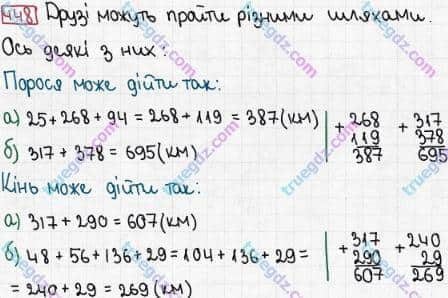 448 Друзі можуть пройти різними шляхами.
Ось деякі з них:
Порося може дійти так:
а) 25+268+94 = 268+119 = 387(км)
б) 317+378 = 695(км)
+268
119
387
+317
378
695
Кінь може дійти так:
а) 317+290 = 607(км)
б) 48+56+136+29=104+136+29=
=240+29=269(км)
+317
290
607
+240
29
269
truegdz.com